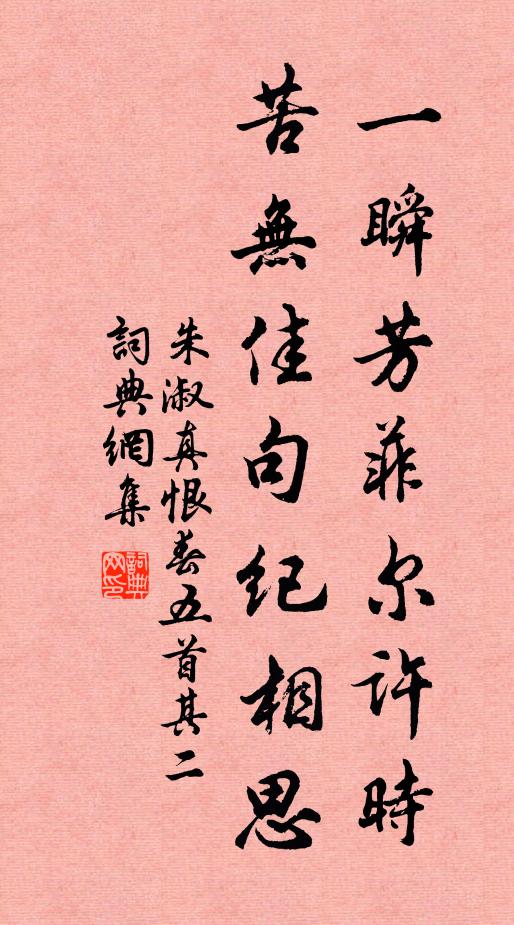 一瞬芳菲尔許時
苦無佳句紀相思
朱淑真恨春五首其二
詞典網集
詞典網印